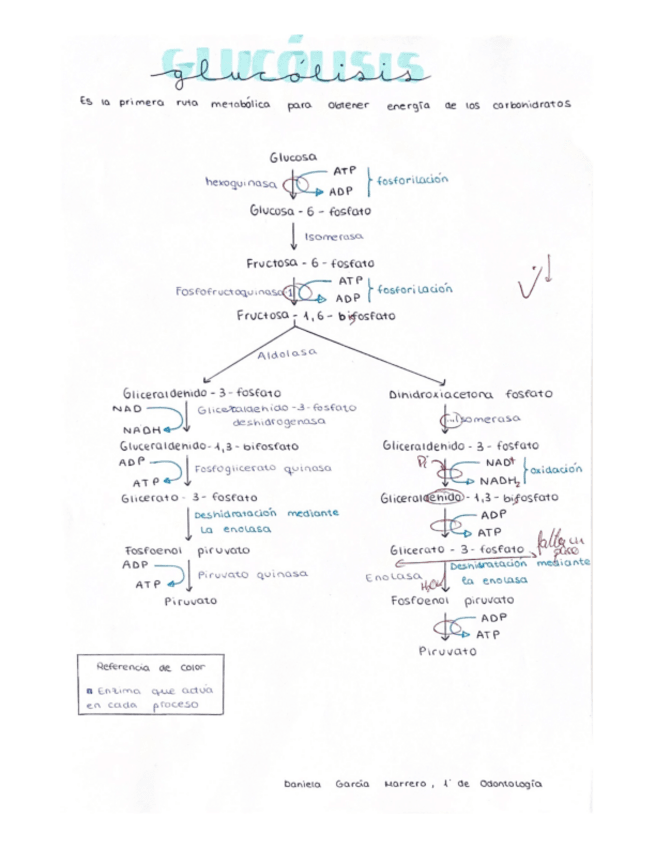 GLUCÓLISIS
glucólisis
Es la primera ruta metabólica para obtener energía de los carbohidratos
Glucosa
hexoquinasa ATP fosforilación
ADP
Glucosa - 6 - fosfato
Isomerasa
Fructosa - 6 - fosfato
Fosfofructoquinasa 1 ATP fosforilación
ADP
Fructosa - 1,6 - bifosfato
Aldolasa
Gliceraldenido - 3 - fosfato
NAD Gliceraldenido - 3 - fosfato
NADH deshidrogenasa
Gluceraldenido - 1,3 - bifosfato
ADP Fosfoglicerato quinasa
ATP
Glicerato - 3 - fosfato
Deshidratación mediante
la enolasa
Fosfoenol piruvato
ADP Piruvato quinasa
ATP
Piruvato
Dinidroxiacetona fosfato
Isomerasa
Gliceraldenido - 3 - fosfato
Pi NAD+ oxidación
NADH2
Gliceraldenido - 1,3 - bifosfato
ADP
ATP
Glicerato - 3 - fosfato falta un
paso
Enolasa Deshidratación mediante
H2O la enolasa
Fosfoenol piruvato
ADP
ATP
Piruvato
Referencia de color
Enzima que actúa
en cada proceso
Daniela García Marrero, 1º de Odontología